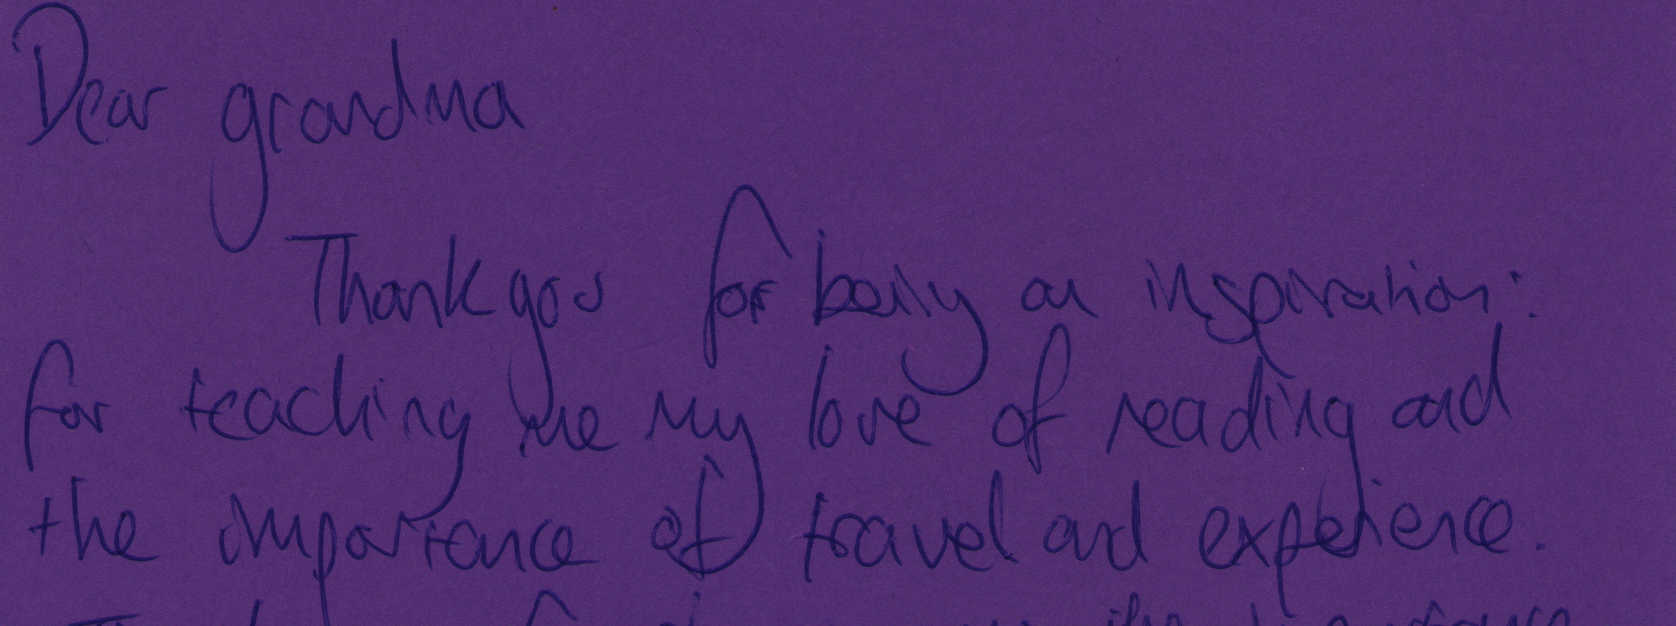 Dear grandma
Thank you for being an inspiration:
for teaching me my love of reading and
the importance of travel and experience.